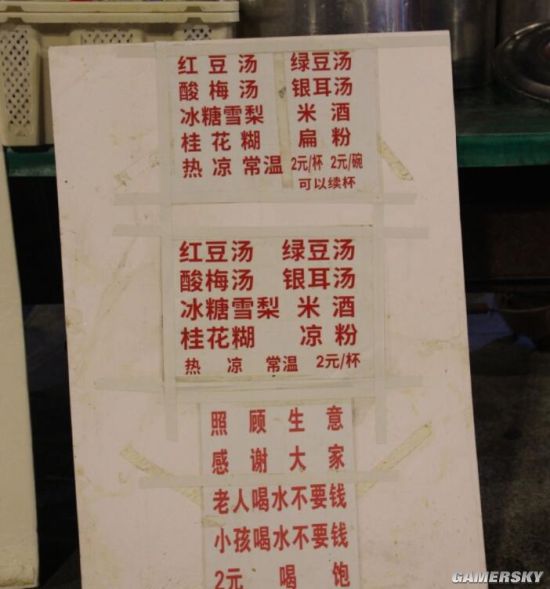 红豆汤 绿豆汤
酸梅汤 银耳汤
冰糖雪梨 米酒
桂花糊 扁粉
热 凉 常温 2元/杯 2元/碗
可以续杯
红豆汤 绿豆汤
酸梅汤 银耳汤
冰糖雪梨 米酒
桂花糊 凉粉
热 凉 常温 2元/杯
照顾生意
感谢大家
老人喝水不要钱
小孩喝水不要钱
2元喝饱
GAMERSKY